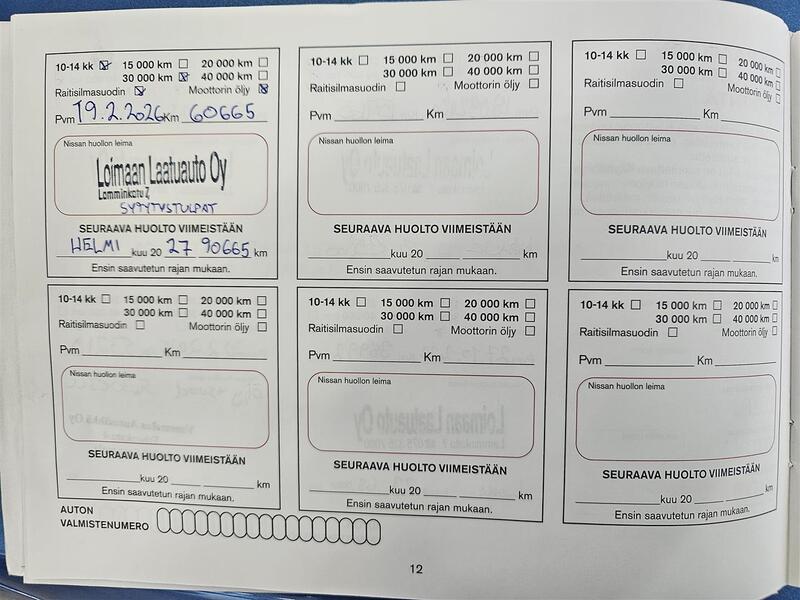 10-14 kk 15 000 km 20 000 km
30 000 km 40 000 km
Raitisilmasuodin Moottorin öljy
Pvm 19.2.2026 Km 60665
Nissan huollon leima
Loimaan Laatuauto Oy
Lamminkatu 7,
SYTYTYSTULPAT
SEURAAVA HUOLTO VIIMEISTÄÄN
HELMI kuu 20 27 90665 km
Ensin saavutetun rajan mukaan.
10-14 kk 15 000 km 20 000 km
30 000 km 40 000 km
Raitisilmasuodin Moottorin öljy
Pvm Km
Nissan huollon leima
SEURAAVA HUOLTO VIIMEISTÄÄN
kuu 20 km
Ensin saavutetun rajan mukaan.
10-14 kk 15 000 km 20 000 km
30 000 km 40 000 km
Raitisilmasuodin Moottorin öljy
Pvm Km
Nissan huollon leima
SEURAAVA HUOLTO VIIMEISTÄÄN
kuu 20 km
Ensin saavutetun rajan mukaan.
10-14 kk 15 000 km 20 000 km
30 000 km 40 000 km
Raitisilmasuodin Moottorin öljy
Pvm Km
Nissan huollon leima
SEURAAVA HUOLTO VIIMEISTÄÄN
kuu 20 km
Ensin saavutetun rajan mukaan.
10-14 kk 15 000 km 20 000 km
30 000 km 40 000 km
Raitisilmasuodin Moottorin öljy
Pvm Km
Nissan huollon leima
SEURAAVA HUOLTO VIIMEISTÄÄN
kuu 20 km
Ensin saavutetun rajan mukaan.
10-14 kk 15 000 km 20 000 km
30 000 km 40 000 km
Raitisilmasuodin Moottorin öljy
Pvm Km
Nissan huollon leima
SEURAAVA HUOLTO VIIMEISTÄÄN
kuu 20 km
Ensin saavutetun rajan mukaan.
AUTON
VALMISTENUMERO
12